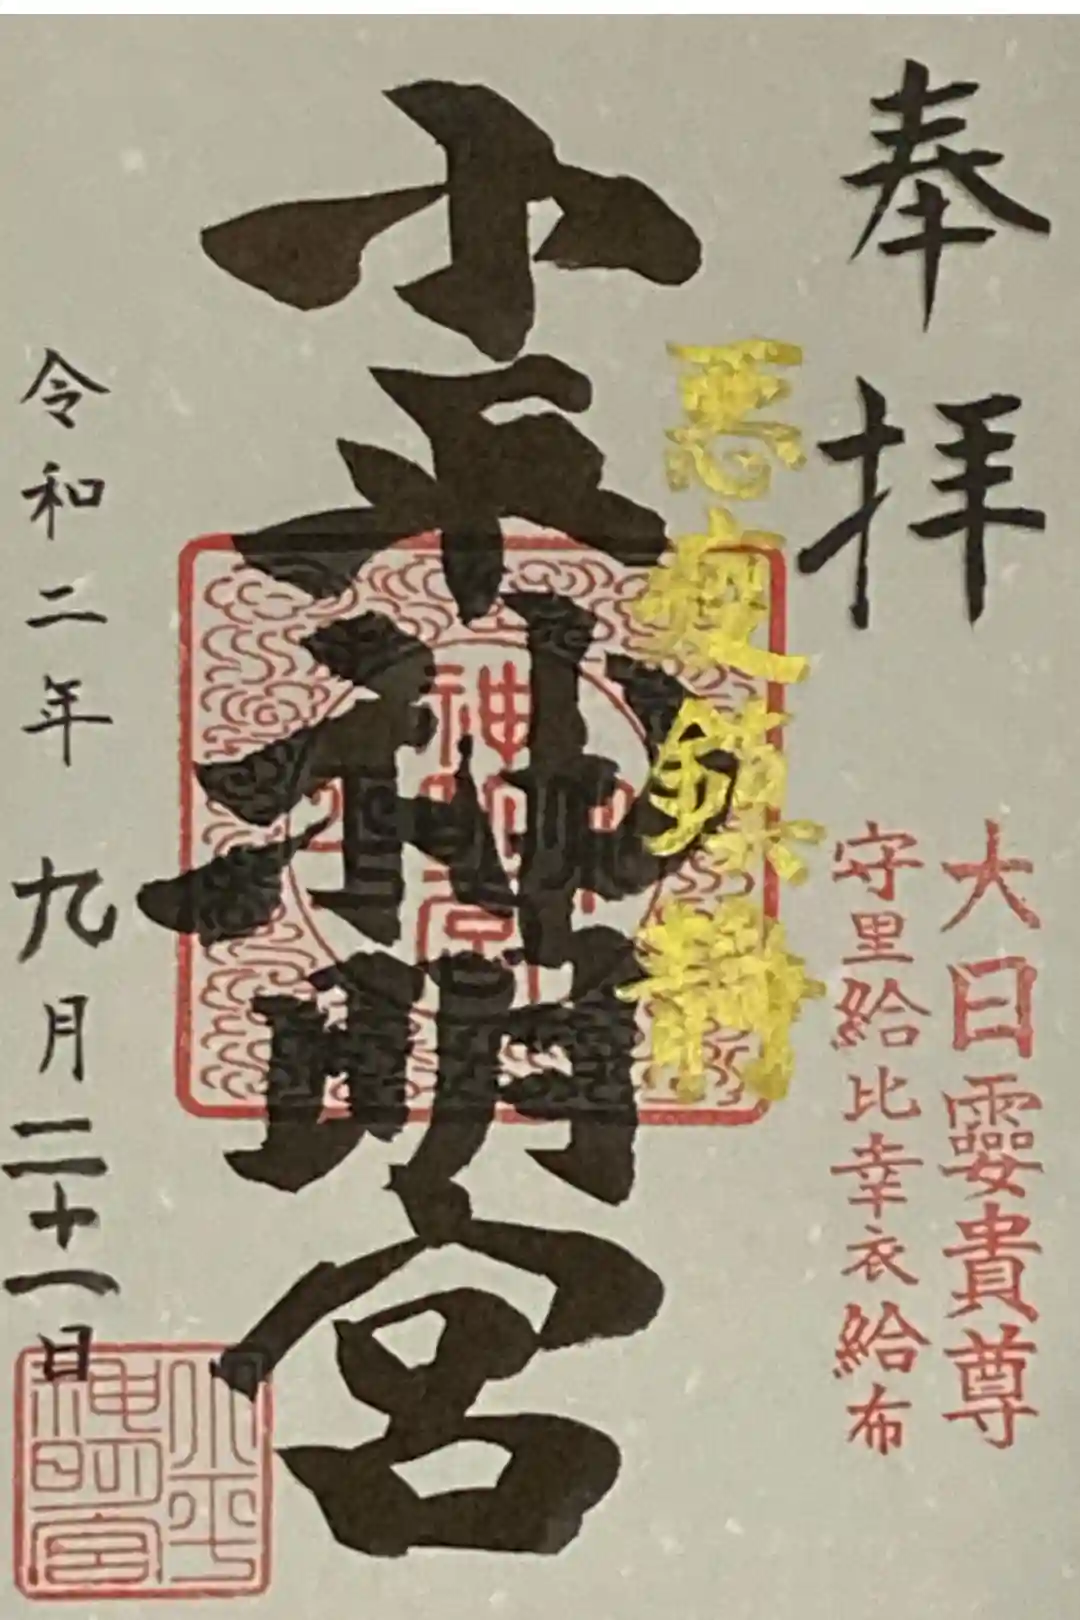 奉拝
大日孁貴尊
守里給比幸衣給布
悪疫鎮静
小平神明宮
令和二年 九月二十一日
小平
神明宮